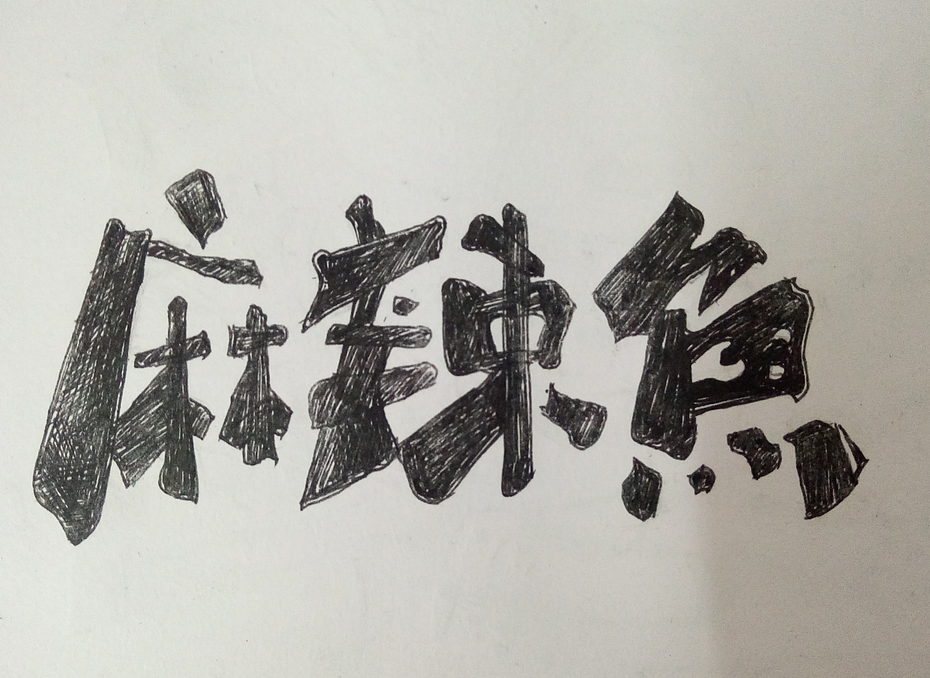 麻辣魚